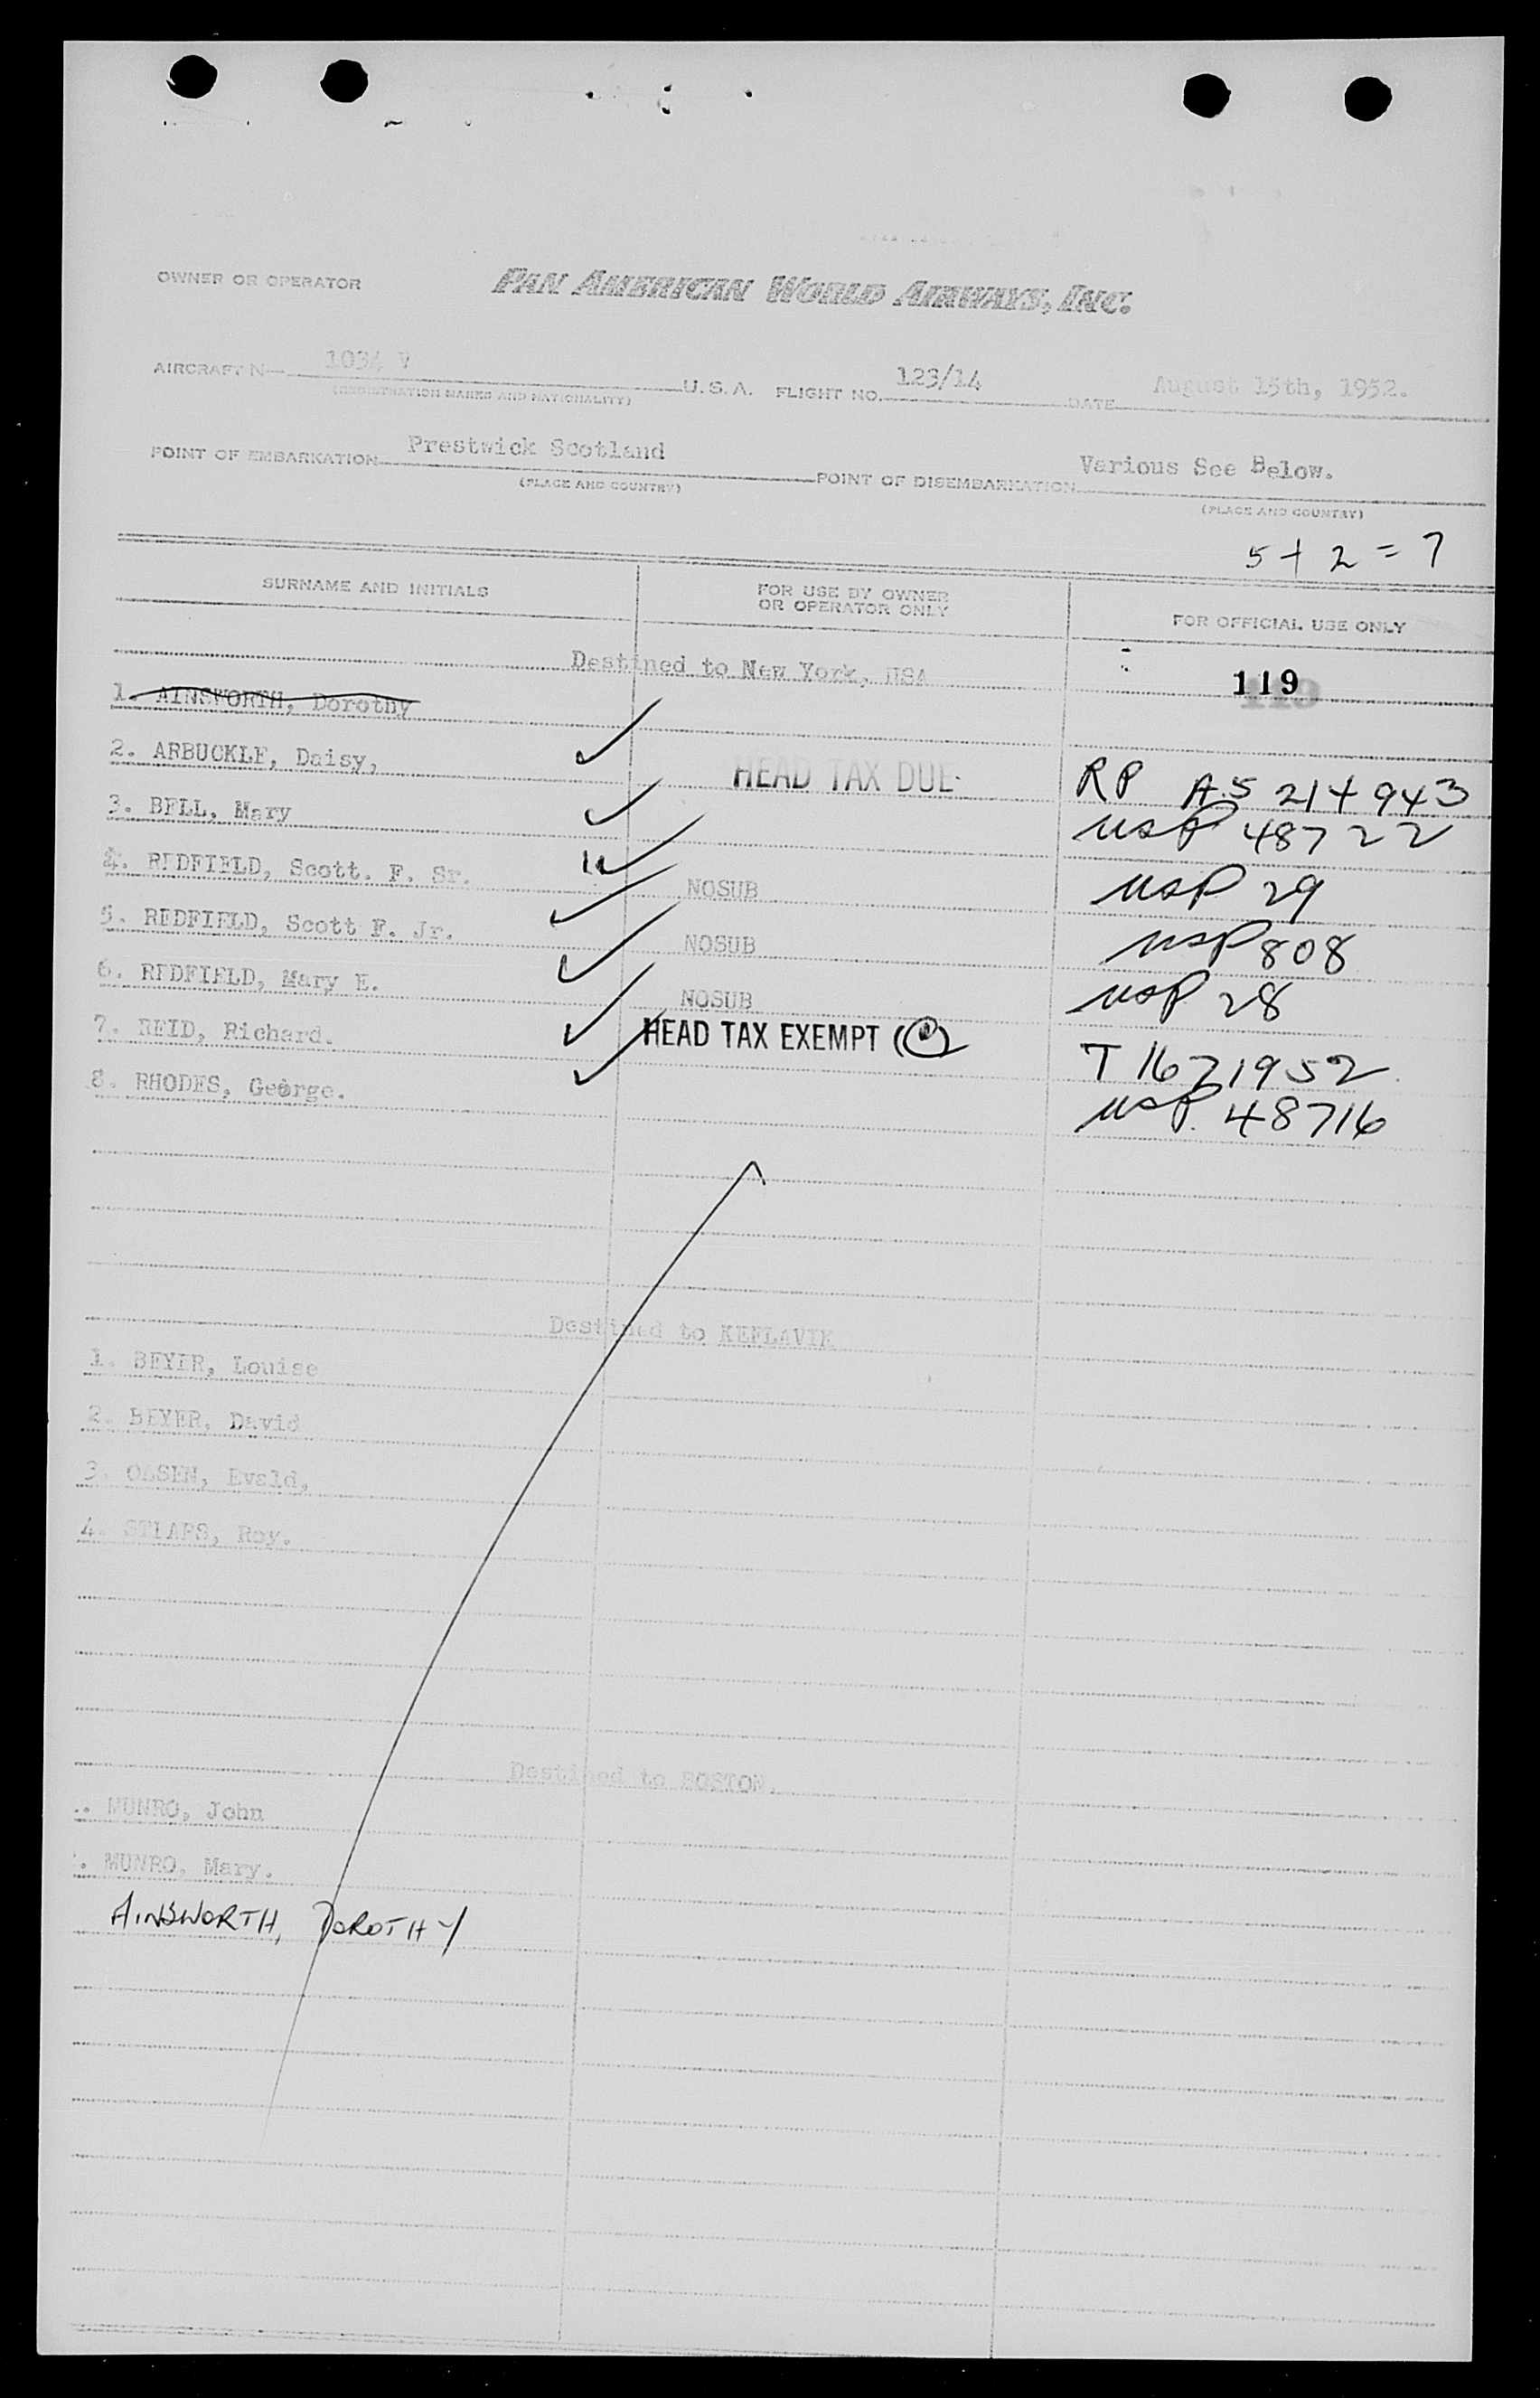 OWNER OR OPERATOR PAN AMERICAN WORLD AIRWAYS, INC.
AIRCRAFT N— 1034 V U. S. A. FLIGHT NO. 123/14 DATE August 15th, 1952.
(REGISTRATION MARKS AND NATIONALITY)
POINT OF EMBARKATION Prestwick Scotland POINT OF DISEMBARKATION Various See Below.
(PLACE AND COUNTRY) (PLACE AND COUNTRY)
5 + 2 = 7
SURNAME AND INITIALS FOR USE BY OWNER OR OPERATOR ONLY FOR OFFICIAL USE ONLY
Destined to New York, USA 119
1. AINSWORTH, Dorothy
2. ARBUCKLE, Daisy, HEAD TAX DUE RP A5 214 943
3. BELL, Mary USP 48722
4. REDFIELD, Scott. F. Sr. NOSUB USP 29
5. REDFIELD, Scott F. Jr. NOSUB USP 808
6. REDFIELD, Mary E. NOSUB USP 28
7. REID, Richard. HEAD TAX EXEMPT T 1671952
8. RHODES, George. USP. 48716
Destined to KEFLAVIK
1. BEYER, Louise
2. BEYER, David
3. OLSEN, Evald,
4. Roy.
Destined to BOSTON.
. MUNRO, John
. MUNRO, Mary.
AINSWORTH, DOROTHY